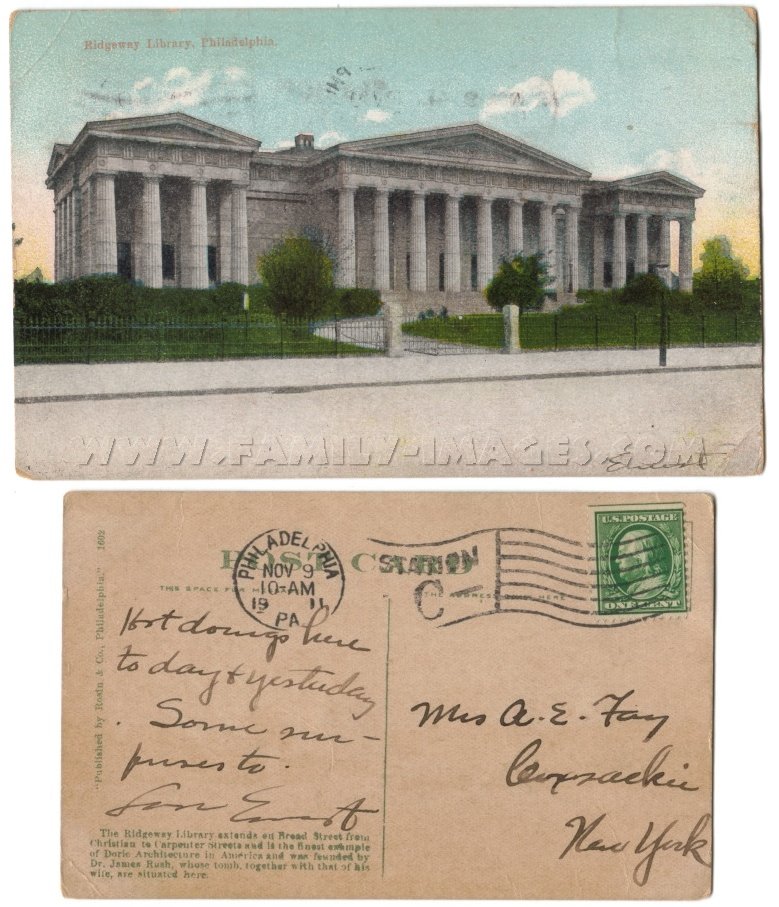 Ridgeway Library, Philadelphia.
WWW.FAMILY-IMAGES.COM
Ernest
POST CARD
THIS SPACE FOR
THE ADDRESS ONLY HERE
PHILADELPHIA
NOV 9
10-AM
19 11
PA
STATION
C
U.S. POSTAGE
ONE CENT
"Published by Rosin & Co., Philadelphia." 1602
Hot doings here
to day & yesterday
. Some sur-
prises to.
Ernest
Mrs A. E. Fay
Coxsackie
New York
The Ridgeway Library extends on Broad Street from
Christian to Carpenter Streets and is the finest example
of Doric Architecture in America and was founded by
Dr. James Rush, whose tomb, together with that of his
wife, are situated here.